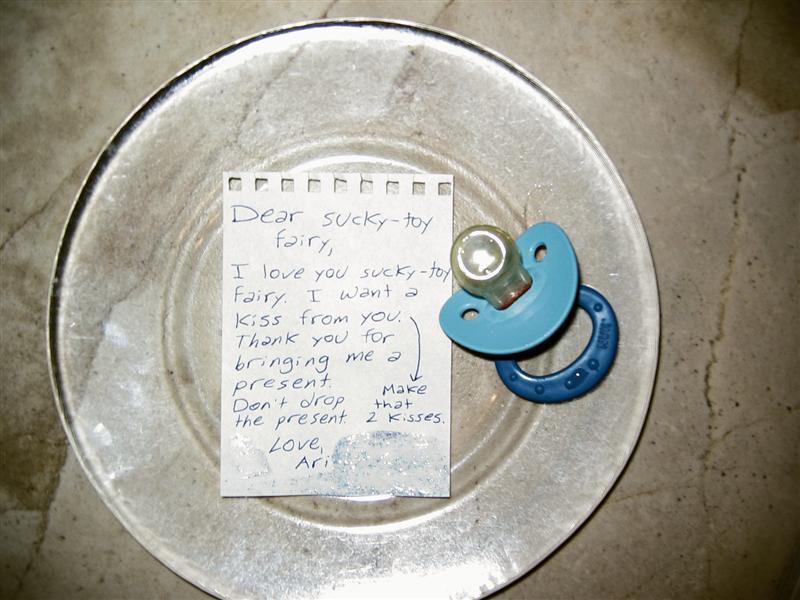 Dear sucky-toy
fairy,
I love you sucky-toy
fairy. I want a
kiss from you.
Thank you for
bringing me a
present.
Don't drop
the present.
Make
that
2 kisses.
Love,
Ari